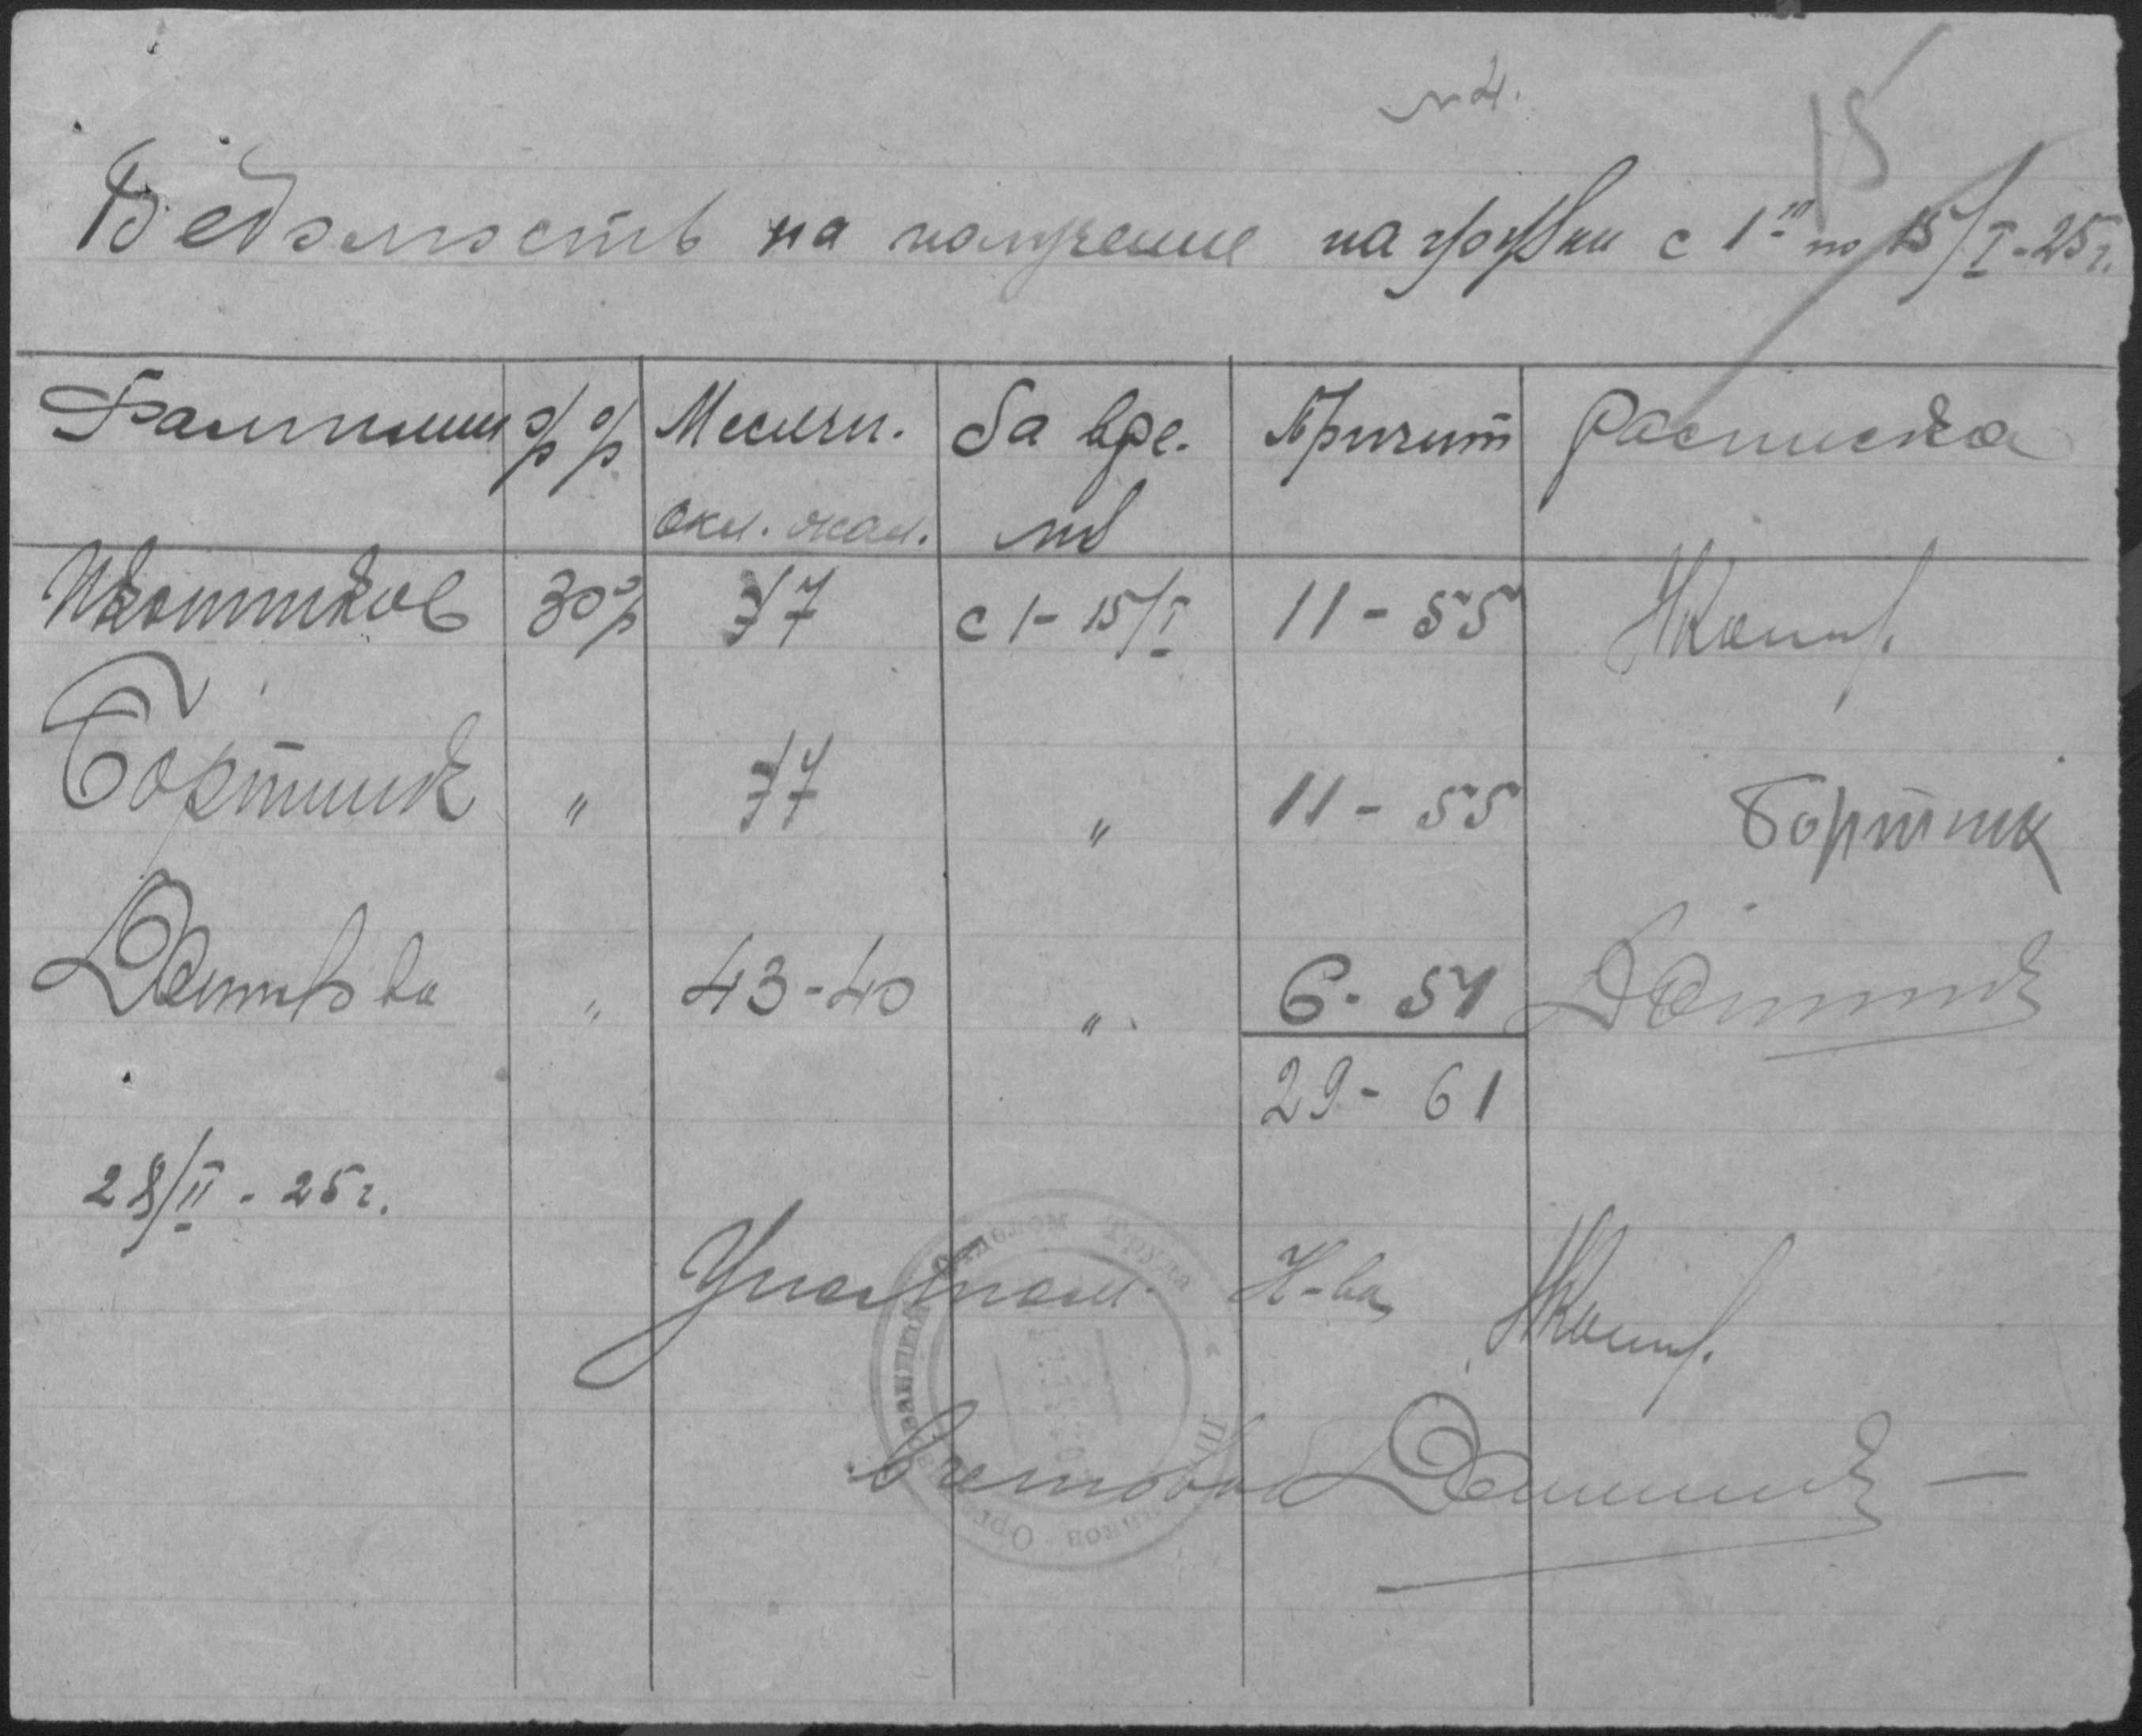 № 4.
15
Ведомость на получение нагрузки с 1го по 15/I-25г.
Фамилии | % % | Месячн. окл. жал. | За время | Причит | Расписка
30% | 77 | с 1-15/I | 11-55
Бортник | " | 77 | " | 11-55 | Бортник
" | 43-40 | " | 6-51
29-61
28/II-25г.
Уполном. Н-ва
Счетовод
Отделом Труда